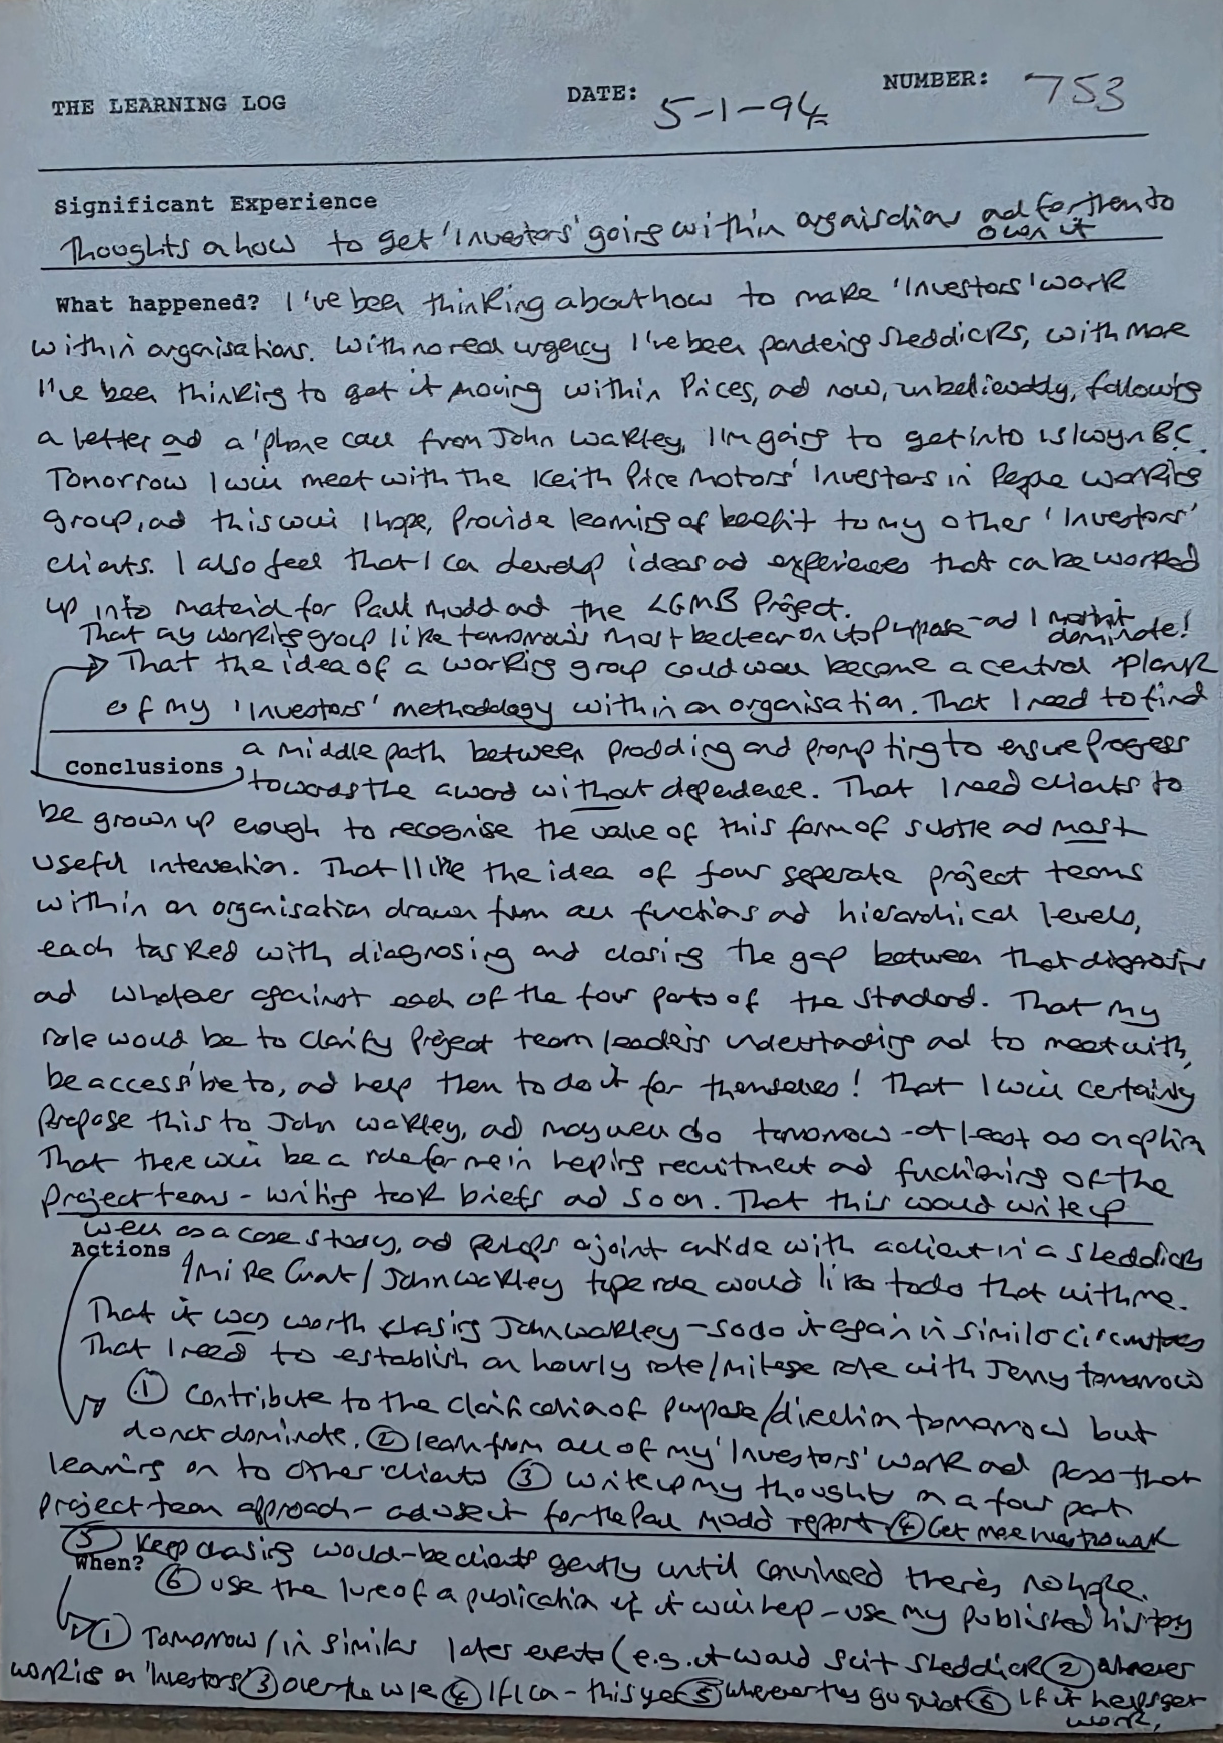 THE LEARNING LOG DATE: 5-1-94 NUMBER: 753
Significant Experience
Thoughts on how to get 'Investors' going within organisations and for them to
own it
What happened? I've been thinking about how to make 'Investors' work
within organisations. With no real urgency I've been pondering Sleddicks, with more
I've been thinking to get it moving within Prices, and now, unbelievably, following
a letter and a 'phone call from John Wakley, I'm going to get into Islwyn BC.
Tomorrow I will meet with the Keith Price Motors' Investors in People working
group, and this will I hope, provide learning of benefit to my other 'Investors'
clients. I also feel that I can develop ideas and experiences that can be worked
up into material for Paul Mudd and the LGMB Project.
That any working group like tomorrow's must be clear on its purpose - and I mustn't
dominate!
That the idea of a working group could well become a central plank
of my 'Investors' methodology within an organisation. That I need to find
a middle path between prodding and prompting to ensure progress
Conclusions towards the award without dependence. That I need clients to
be grown up enough to recognise the value of this form of subtle and most
useful intervention. That I like the idea of four seperate project teams
within an organisation drawn from all functions and hierarchical levels,
each tasked with diagnosing and closing the gap between that diagnosis
and whatever against each of the four parts of the standard. That my
role would be to clarify project team leaders understanding and to meet with,
be accessible to, and help them to do it for themselves! That I will certainly
propose this to John Wakley, and may well do tomorrow - at least as an option
That there will be a role for me in helping recruitment and functioning of the
project teams - writing task briefs and so on. That this would write up
well as a case study, and perhaps a joint article with a client in a Sleddicks
Actions
/Mike Grant/John Wakley type role would like to do that with me.
That it was worth chasing John Wakley - so do it again in similar circumstances
That I need to establish an hourly rate/mileage rate with Jenny tomorrow
① Contribute to the clarification of purpose/direction tomorrow but
do not dominate. ② learn from all of my 'Investors' work and pass that
learning on to other clients ③ write up my thoughts on a four part
project team approach - and use it for the Paul Mudd report ④ Get me
⑤ Keep chasing would-be clients gently until convinced there's no hope.
When?
⑥ use the lure of a publication if it will help - use my published history
① Tomorrow/in similar later events (e.g. it would suit Sleddick ② whenever
working on 'Investors' ③ over the w/e ④ If I can - this year ⑤ whenever they go quiet ⑥ If it helps get
work.